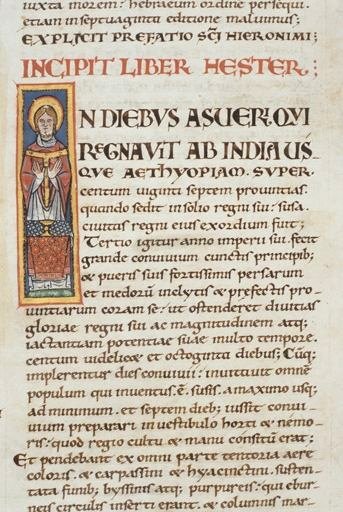 iuxta morem: hebraeum ordine persequi.
etiam in septuaginta editione maluimus;
EXPLICIT PREFATIO SCI HIERONIMI;
INCIPIT LIBER HESTER;
N DIEBVS ASUERI. QVI
REGNAVIT AB INDIA US
QVE AETHYOPIAM. SUPER.
centum uiginti septem prouintias.
quando sedit in solio regni sui: susa
ciuitas regni eius exordium fuit;
Tertio igitur anno imperii sui. fecit
grande conuiuium cunctis principib;
& pueris suis fortissimis persarum
et medorum inclytis & prefectis pro-
uintiarum coram se: ut ostenderet diuitias
gloriae regni sui ac magnitudinem atq;
iactantiam potentiae suae multo tempore.
centum uidelicet et octoginta diebus; Cūq;
implerentur dies conuiuii: inuitauit omnē
populum qui inuentus .ē. susis. a maximo usq;
ad minimum. et septem dieb; iussit conui-
uium preparari in uestibulo horti & nemo-
ris: quod regio cultu & manu consitū erat;
Et pendebant ex omni parte tentoria aere
coloris. & carpassini & hyacinctini. susten-
tata funib; byssinis atq; purpureis: qui ebur-
neis circulis inserti erant. & columnis mar-